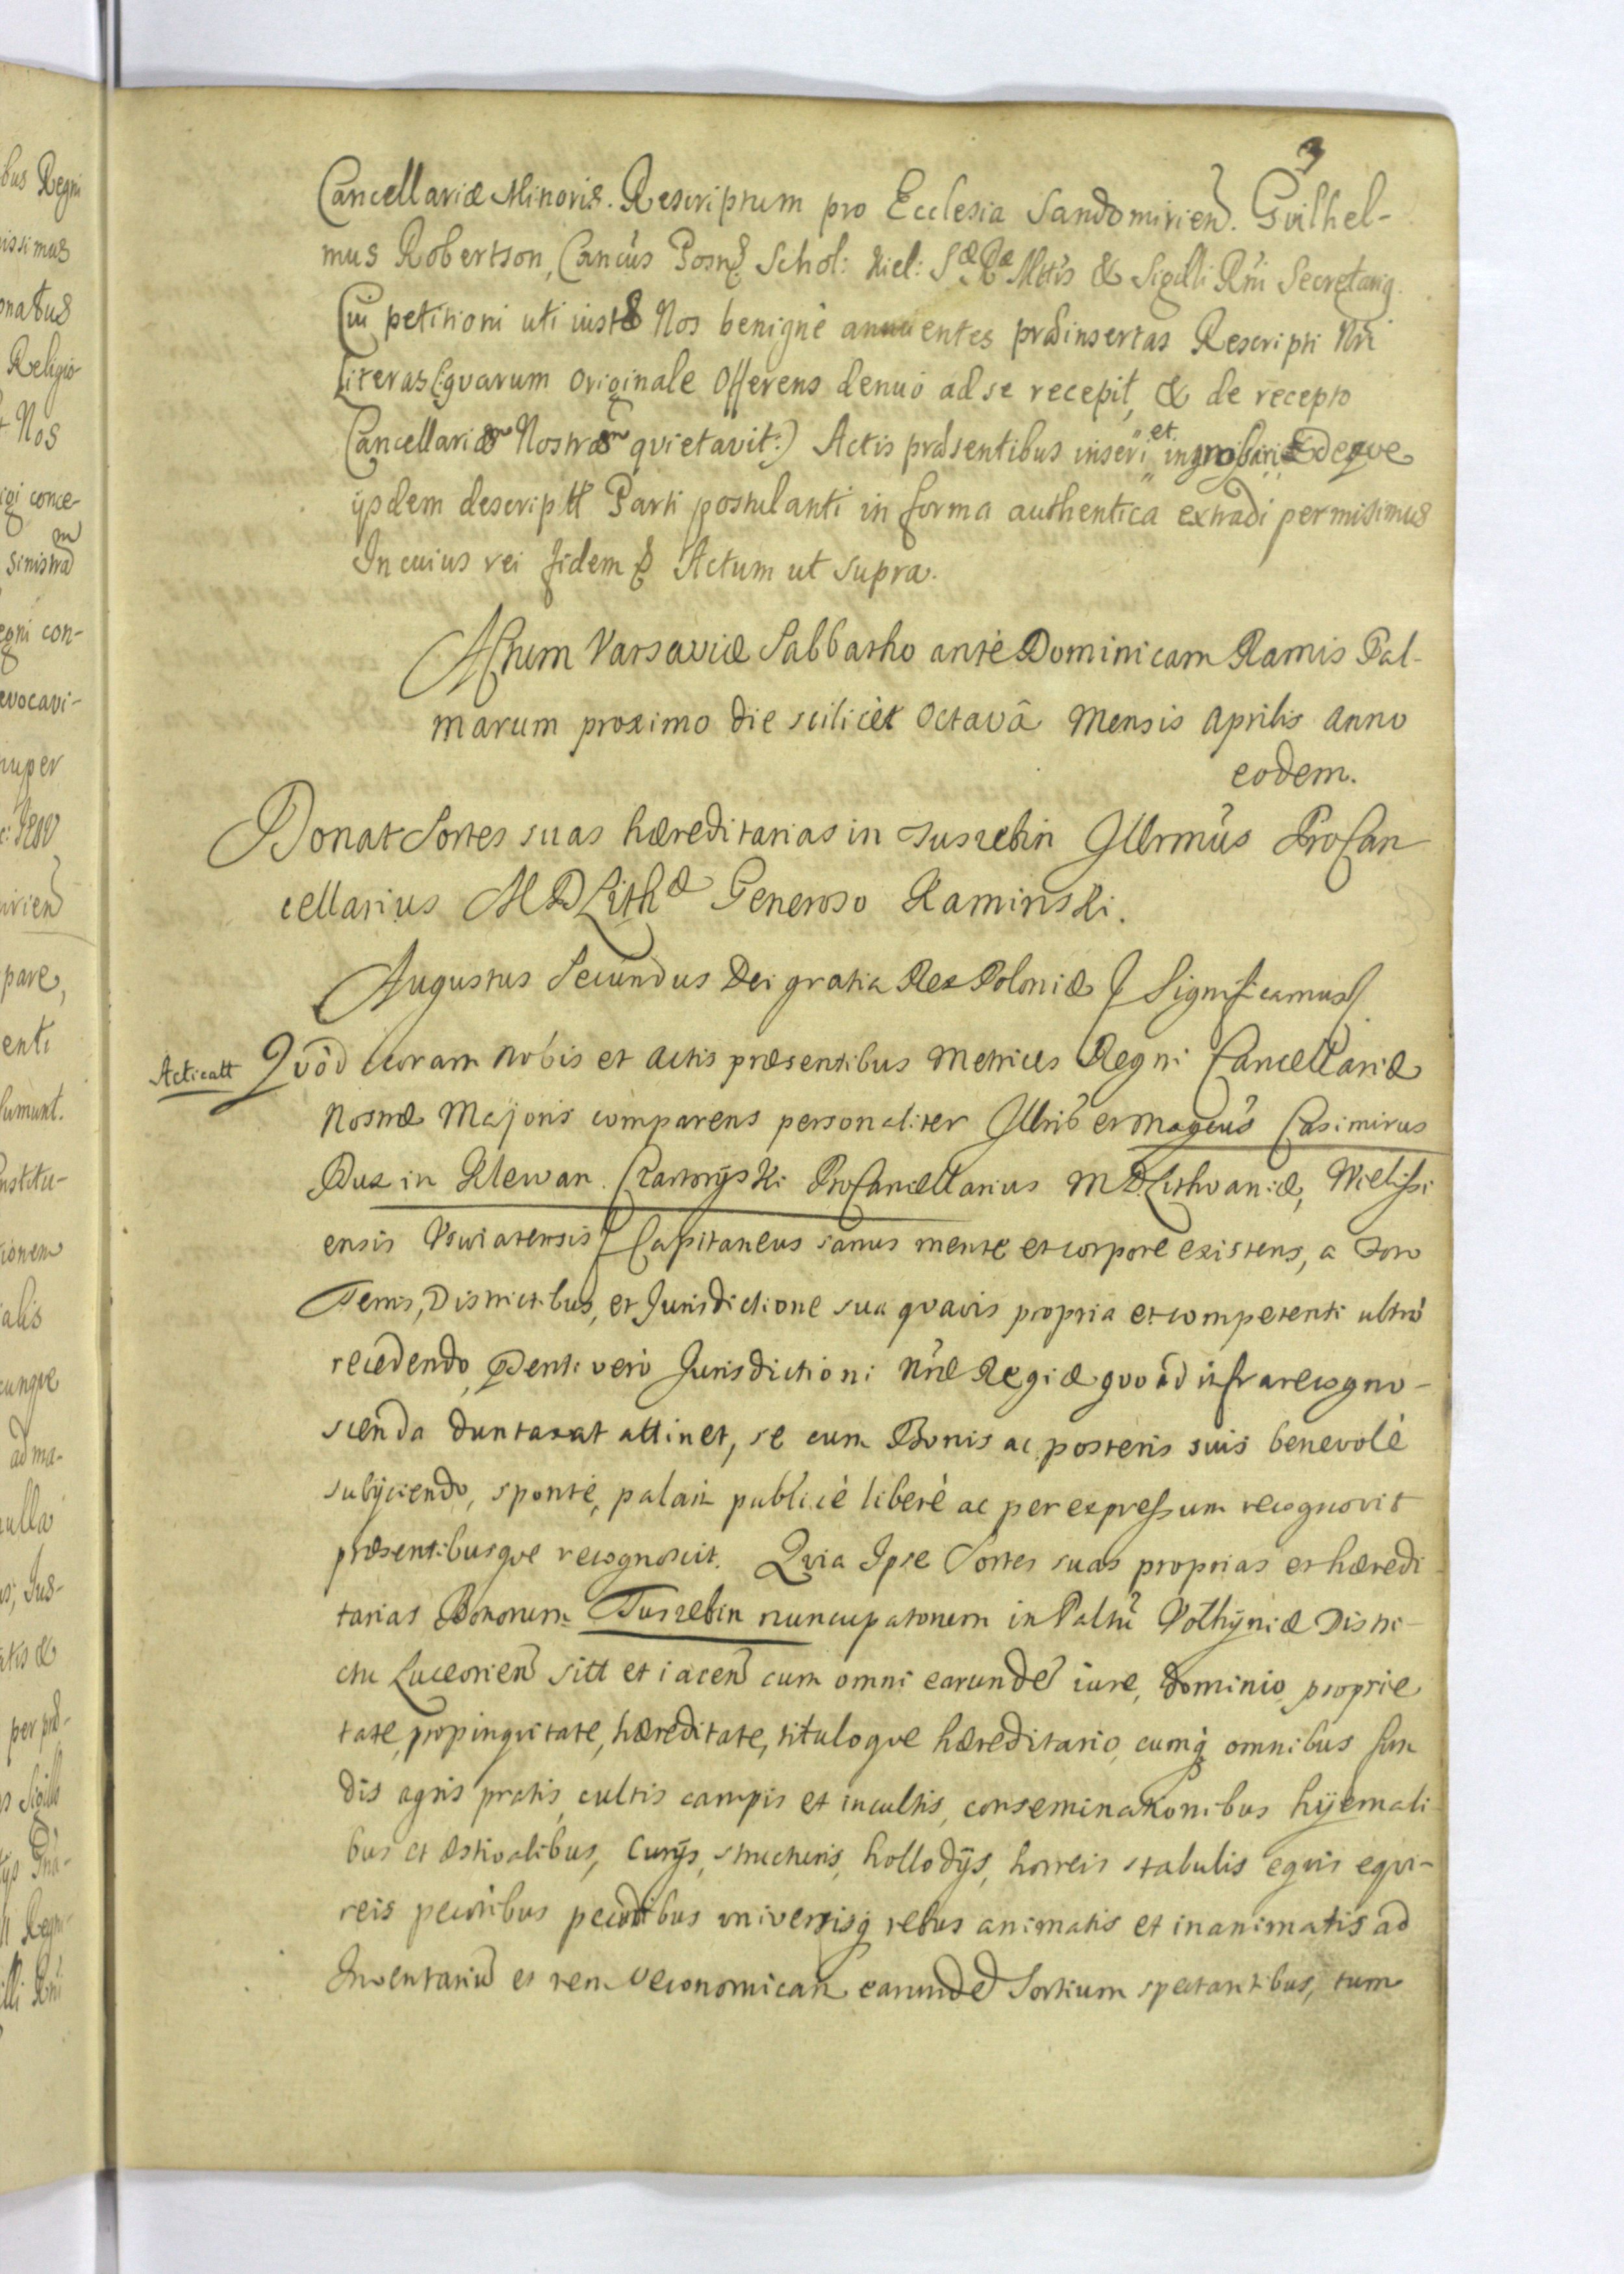 3
Cancellariæ Minoris. Rescriptum pro Ecclesia Sandomirien. Guilhel-
mus Robertson, Cancus Posn Schol: Kiel: Sæ Ræ Mttis & Sigilli Rni Secretarig.
Cui petitioni uti iustæ Nos benignè annuentes præinsertas Rescripti Nri
Literas (:quarum Originale Offerens denuò ad se recepit, & de recepto
Cancellariam Nostram quietavit:) Actis præsentibus inseri et ingrossari Edeque
ijsdem descriptt Parti postulanti in forma authentica extradi permisimus
In cuius rei fidem & Actum ut supra.
Actum Varsaviæ Sabbatho antè Dominicam Ramis Pal-
marum proximo die scilicèt Octavâ Mensis Aprilis Anno
eodem.
Donat Sortes suas hæreditarias in Tuszebin Illrmus ProCan
cellarius M D Lithæ Generoso Kaminski.
Augustus Secundus Dei gratia Rex Poloniæ & Significamus &
Acticatt
Quòd coram nobis et actis præsentibus Metrices Regni Cancellariæ
Nostræ Majoris comparens personaliter Illris et Magcus Casimirus
Dux in Klewan Czartoryski ProCancellarius M D Lithvaniæ, Wielissi
ensis Uswiatensis & Capitaneus sanus mente et corpore existens, a Foro
Terris, Districtibus, et Jurisdictione sua quavis propria et competenti ultrò
recedendo, Pnti verò Jurisdictioni Nræ Regiæ quo ad infrarecogno-
scenda duntaxat attinet, se cum Bonis ac posteris suis benevolè
subijciendo, spontè, palam publicè liberè ac per expressum recognovit
præsentibusque recognoscit. Quia Ipse Sortes suas proprias et hæredi
tarias Bonorum Tuszebin nuncupatorum in Paltu Volhyniæ Distri-
ctu Luceorien sitt et iacen cum omni earunde iure, dominio, proprie
tate, propinquitate, hæreditate, tituloque hæreditario, cumq omnibus fun
dis agris pratis, cultis campis et incultis, conseminationibus hyemali
bus et æstivalibus, Curijs, structuris, hollodijs, horreis stabulis equis equi-
reis pecoribus pecudibus universisq rebus animatis et inanimatis ad
Inventariu et rem oeconomicam earunde Sortium spectantibus, tum